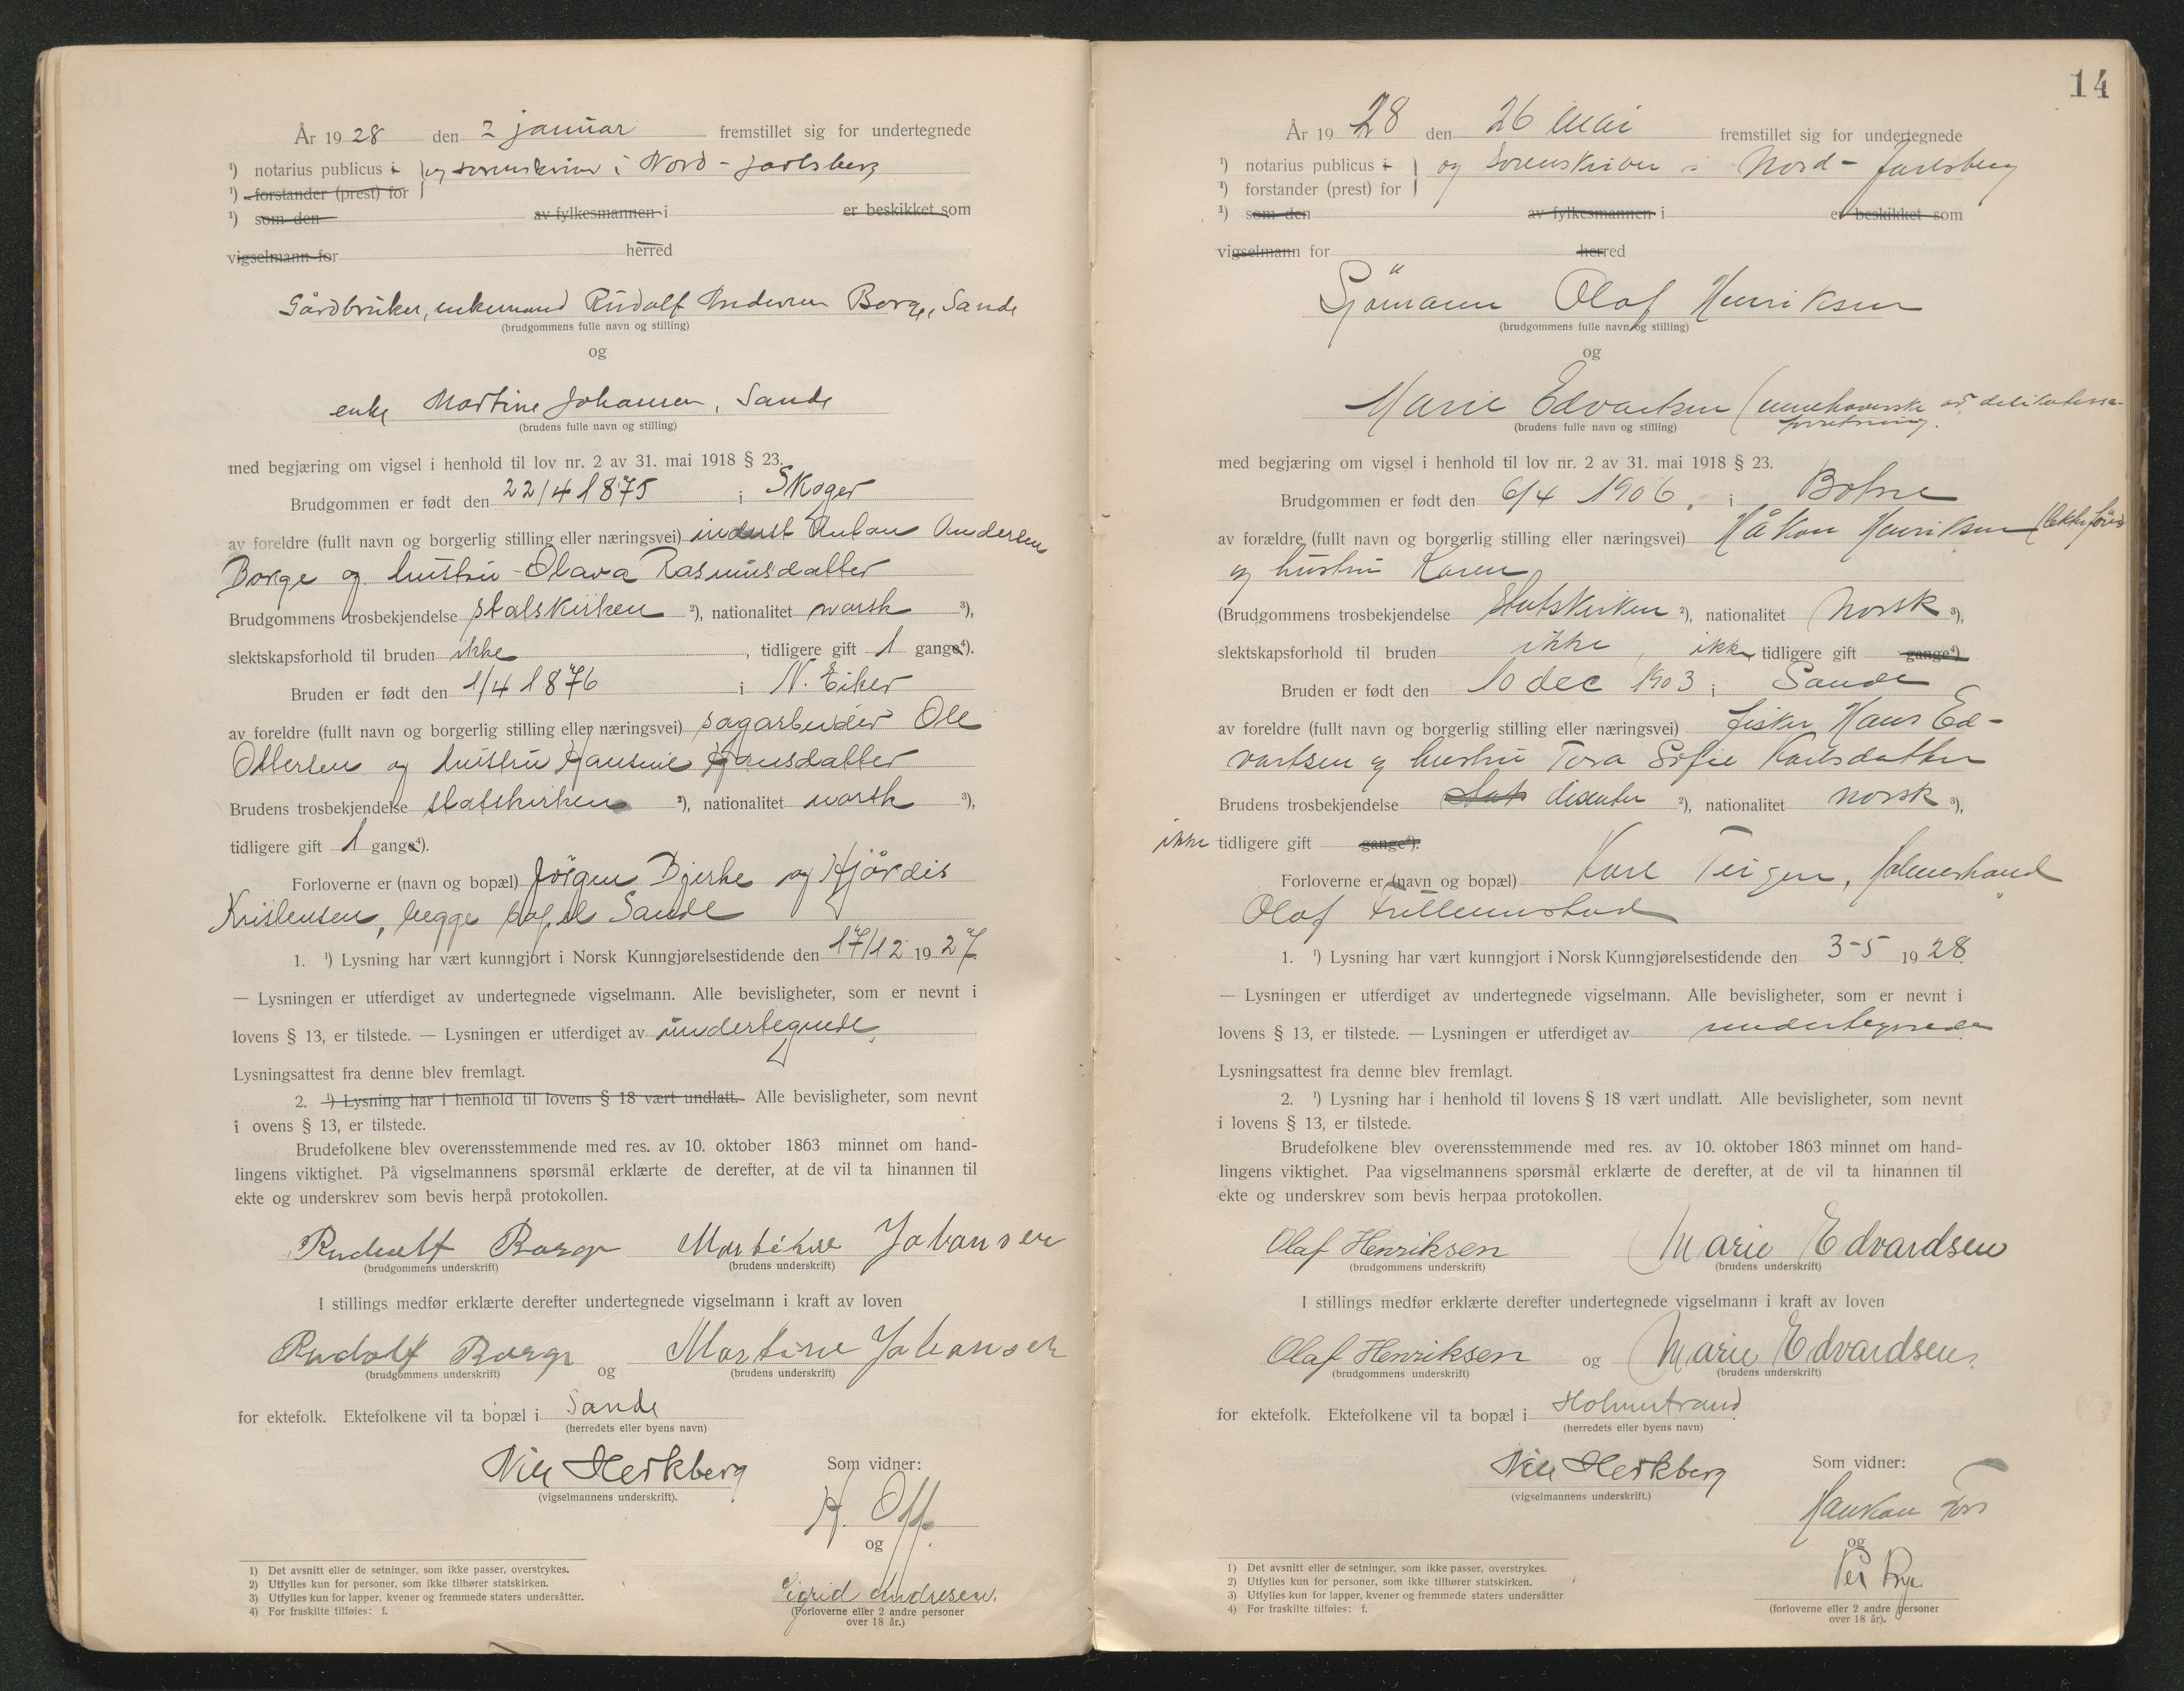 År 1928 den 2 januar fremstillet sig for undertegnede
¹) notarius publicus i } og sorenskriver i Nord-Jarlsberg
¹) forstander (prest) for
¹) som den av fylkesmannen i er beskikket som
vigselmann for herred
Gårdbruker, enkemand Rudolf Andersen Borge, Sande
(brudgommens fulle navn og stilling)
og
enke Martine Johansen, Sande
(brudens fulle navn og stilling)
med begjæring om vigsel i henhold til lov nr. 2 av 31. mai 1918 § 23.
Brudgommen er født den 22/4 1875 i Skoger
av foreldre (fullt navn og borgerlig stilling eller næringsvei) inderst Anton Andersen
Borge og hustru Olava Rasmusdatter
Brudgommens trosbekjendelse statskirken ²), nationalitet norsk ³),
slektskapsforhold til bruden ikke, tidligere gift 1 gange⁴).
Bruden er født den 1/4 1876 i N. Eiker
av foreldre (fullt navn og borgerlig stilling eller næringsvei) sagarbeider Ole
Ottersen og hustru Hansine Hansdatter
Brudens trosbekjendelse statskirken ²), nationalitet norsk ³),
tidligere gift 1 gange⁴).
Forloverne er (navn og bopæl) Jörgen Bjerke og Hjördis
Kristensen, begge bopæl Sande
1. ¹) Lysning har vært kunngjort i Norsk Kunngjørelsestidende den 17/12 1927
— Lysningen er utferdiget av undertegnede vigselmann. Alle bevisligheter, som er nevnt i
lovens § 13, er tilstede. — Lysningen er utferdiget av undertegnede.
Lysningsattest fra denne blev fremlagt.
2. ¹) Lysning har i henhold til lovens § 18 vært undlatt. Alle bevisligheter, som nevnt
i ovens § 13, er tilstede.
Brudefolkene blev overensstemmende med res. av 10. oktober 1863 minnet om hand-
lingens viktighet. På vigselmannens spørsmål erklærte de derefter, at de vil ta hinannen til
ekte og underskrev som bevis herpå protokollen.
Rudolf Borge Martine Johansen
(brudgommens underskrift) (brudens underskrift)
I stillings medfør erklærte derefter undertegnede vigselmann i kraft av loven
Rudolf Borge og Martine Johansen
(brudgommens underskrift) (brudens underskrift)
for ektefolk. Ektefolkene vil ta bopæl i Sande
(herredets eller byens navn)
Nils Hertzberg Som vidner:
(vigselmannens underskrift).
H. Off.
og
Sigrid Andresen.
(Forloverne eller 2 andre personer
over 18 år.)
1) Det avsnitt eller de setninger, som ikke passer, overstrykes.
2) Utfylles kun for personer, som ikke tilhører statskirken.
3) Utfylles kun for lapper, kvener og fremmede staters undersåtter.
4) For fraskilte tilføies: f.
14
År 1928 den 26 mai fremstillet sig for undertegnede
¹) notarius publicus i } og sorenskriver i Nord-Jarlsberg
¹) forstander (prest) for
¹) som den av fylkesmannen i er beskikket som
vigselmann for herred
Sjömann Olaf Henriksen
(brudgommens fulle navn og stilling)
og
Marie Edvartsen (innehaverske av delikatesse-
forretning.
(brudens fulle navn og stilling)
med begjæring om vigsel i henhold til lov nr. 2 av 31. mai 1918 § 23.
Brudgommen er født den 6/4 1906. i Botne
av forældre (fullt navn og borgerlig stilling eller næringsvei) Håkon Henriksen
og hustru Karen
(Brudgommens trosbekjendelse Statskirken ²), nationalitet Norsk ³),
slektskapsforhold til bruden ikke, ikke tidligere gift gange⁴)
Bruden er født den 10 dec 1903 i Sande
av foreldre (fullt navn og borgerlig stilling eller næringsvei) fisker Hans Ed-
vartsen og hustru Tora Sofie Karlsdatter
Brudens trosbekjendelse Stat disenter ²), nationalitet norsk ³),
ikke tidligere gift gange⁴).
Forloverne er (navn og bopæl) Karl Teigen, Holmestrand
Olaf
1. ¹) Lysning har vært kunngjort i Norsk Kunngjørelsestidende den 3-5 1928
— Lysningen er utferdiget av undertegnede vigselmann. Alle bevisligheter, som er nevnt i
lovens § 13, er tilstede. — Lysningen er utferdiget av undertegnede
Lysningsattest fra denne blev fremlagt.
2. ¹) Lysning har i henhold til lovens § 18 vært undlatt. Alle bevisligheter, som nevnt
i lovens § 13, er tilstede.
Brudefolkene blev overensstemmende med res. av 10. oktober 1863 minnet om hand-
lingens viktighet. Paa vigselmannens spørsmål erklærte de derefter, at de vil ta hinannen til
ekte og underskrev som bevis herpaa protokollen.
Olaf Henriksen Marie Edvardsen
(brudgommens underskrift) (brudens underskrift)
I stillings medfør erklærte derefter undertegnede vigselmann i kraft av loven
Olaf Henriksen og Marie Edvardsen
(brudgommens underskrift) (brudens underskrift)
for ektefolk. Ektefolkene vil ta bopæl i Holmestrand
(herredets eller byens navn)
Nils Hertzberg Som vidner:
(vigselmannens underskrift.)
Haakon Foss
og
Per
(forloverne eller 2 andre personer
over 18 år).
1) Det avsnitt eller de setninger, som ikke passer, overstrykes.
2) Utfylles kun for personer, som ikke tilhører statskirken.
3) Utfylles kun for lapper, kvener og fremmede staters undersåtter
4) For fraskilte tilføies: f.